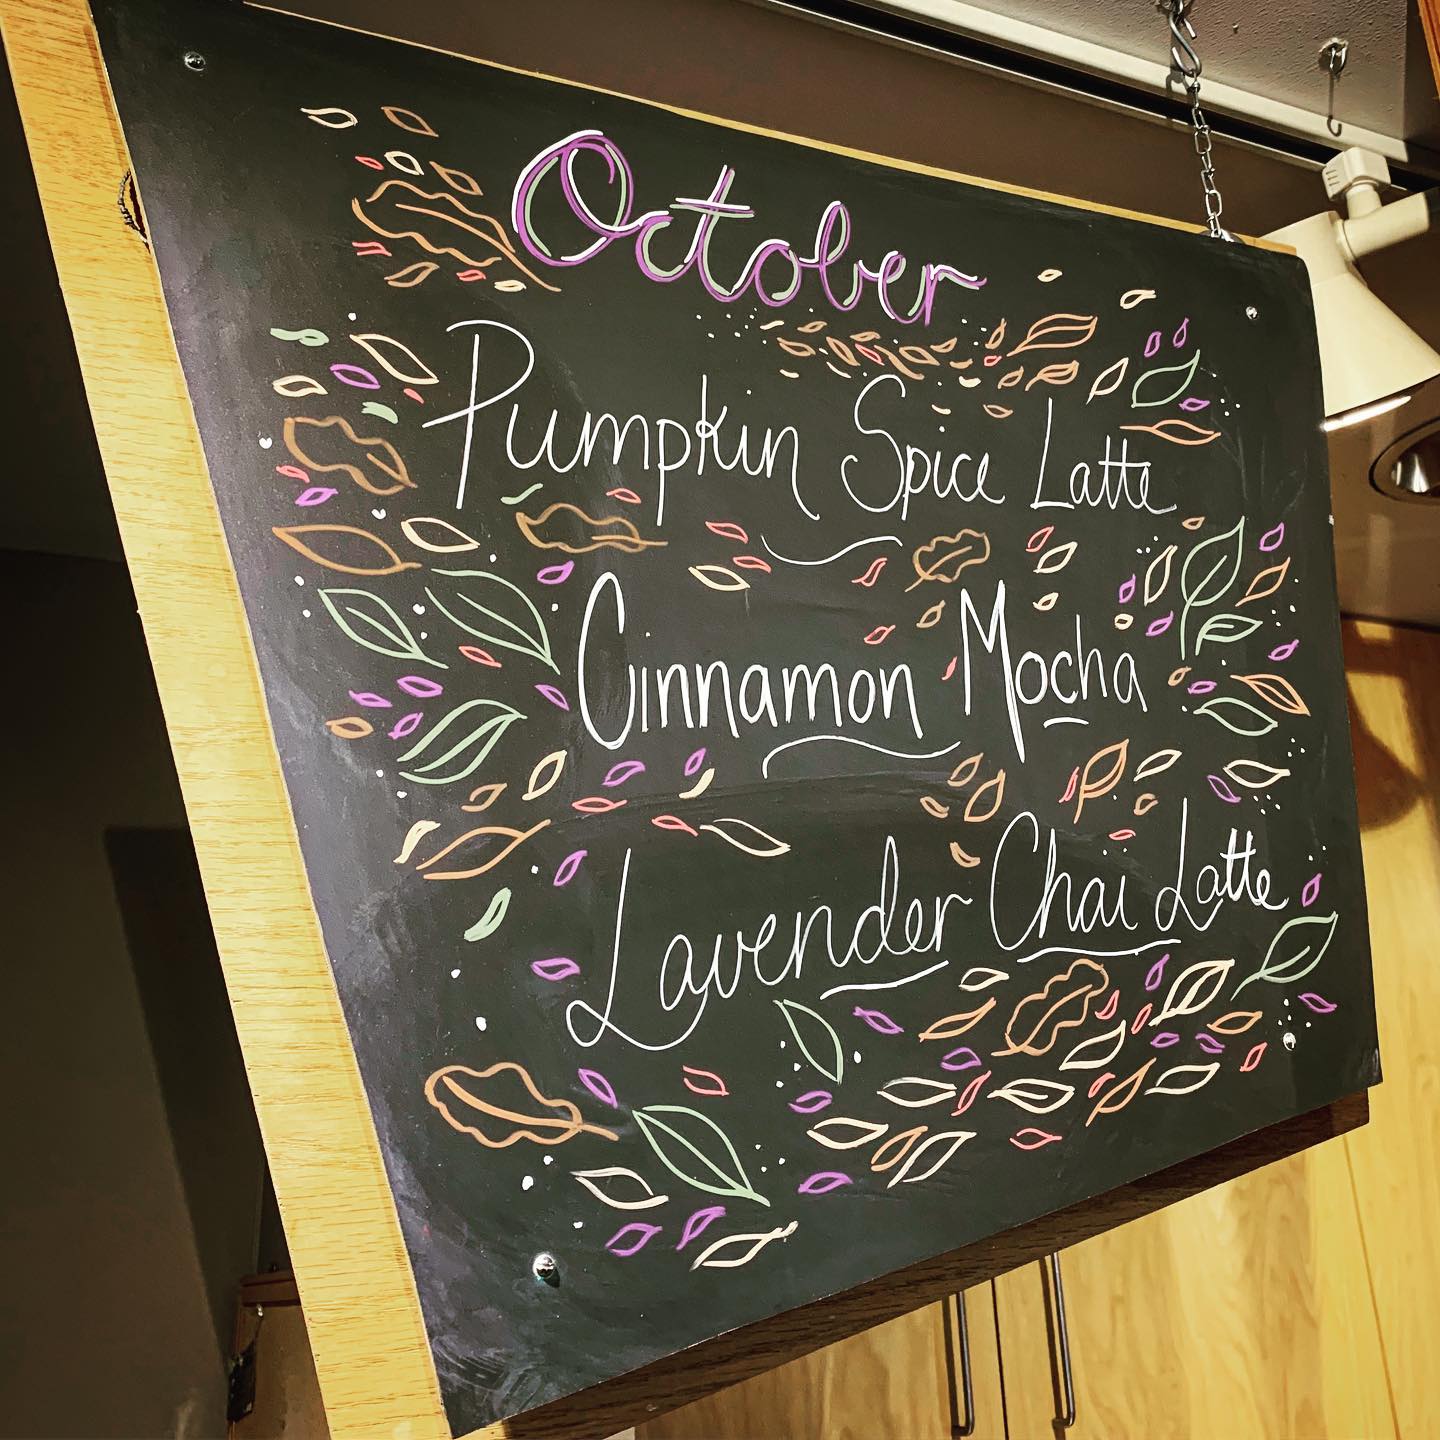 October
Pumpkin Spice Latte
Cinnamon Mocha
Lavender Chai Latte